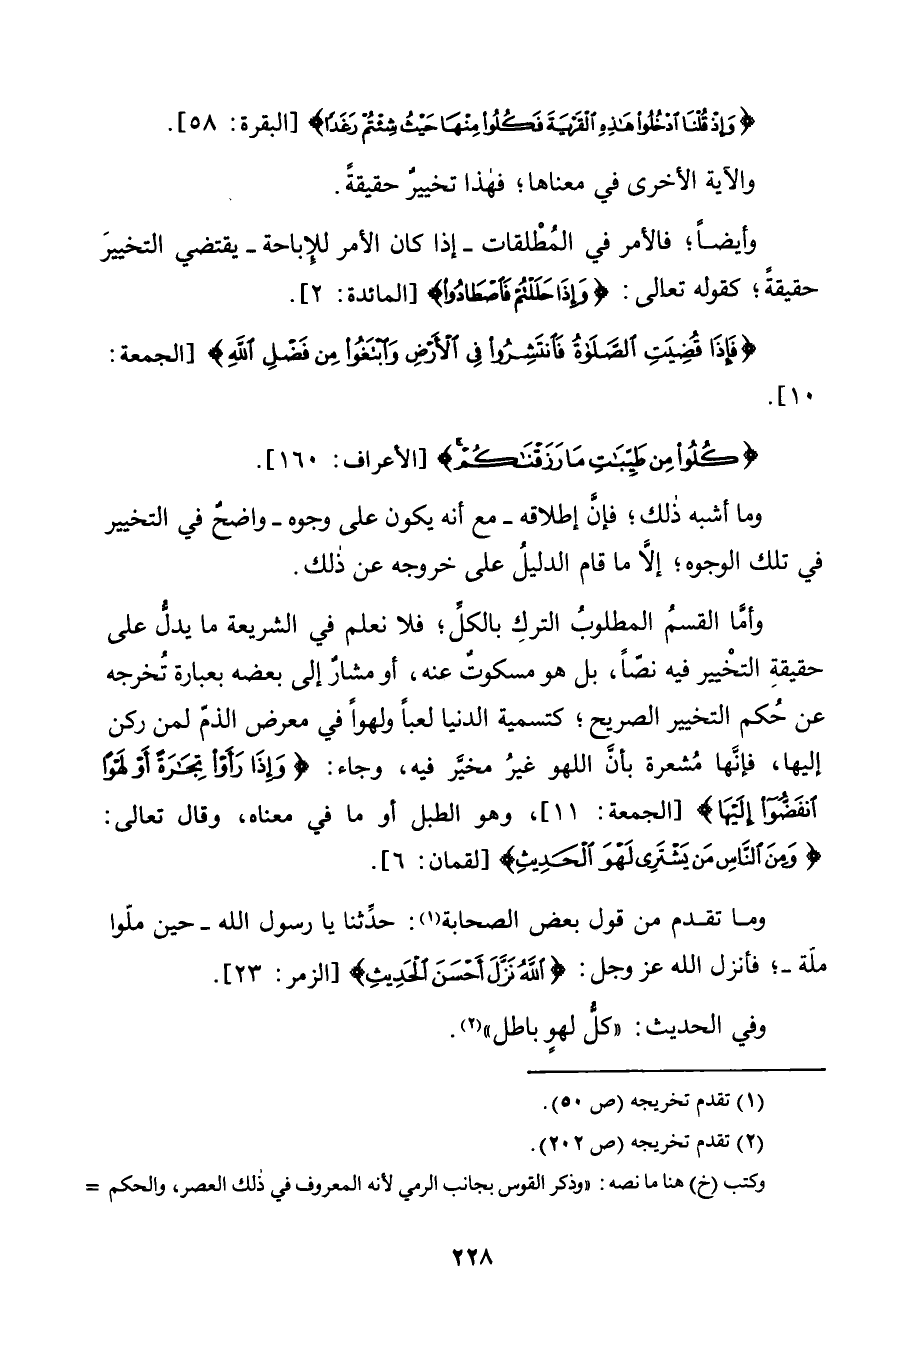 ﴿وَإِذْ قُلْنَا ادْخُلُوا هَٰذِهِ الْقَرْيَةَ فَكُلُوا مِنْهَا حَيْثُ شِئْتُمْ رَغَدًا﴾ [البقرة: ٥٨].
والآية الأخرى في معناها؛ فهٰذا تخييرٌ حقيقةً.
وأيضاً؛ فالأمر في المُطْلقات ـ إذا كان الأمر للإِباحة ـ يقتضي التخييرَ
حقيقةً؛ كقوله تعالى: ﴿وَإِذَا حَلَلْتُمْ فَاصْطَادُوا﴾ [المائدة: ٢].
﴿فَإِذَا قُضِيَتِ الصَّلَوٰةُ فَانتَشِرُوا فِي الْأَرْضِ وَابْتَغُوا مِن فَضْلِ اللَّهِ﴾ [الجمعة:
١٠].
﴿كُلُوا مِن طَيِّبَٰتِ مَا رَزَقْنَٰكُمْ﴾ [الأعراف: ١٦٠].
وما أشبه ذٰلك؛ فإنَّ إطلاقه ـ مع أنه يكون على وجوه ـ واضحٌ في التخيير
في تلك الوجوه؛ إلَّا ما قام الدليلُ على خروجه عن ذٰلك.
وأمَّا القسمُ المطلوبُ التركِ بالكلِّ؛ فلا نعلم في الشريعة ما يدلُّ على
حقيقةِ التخْيير فيه نصّاً، بل هو مسكوتٌ عنه، أو مشارٌ إلى بعضه بعبارة تُخرجه
عن حُكم التخيير الصريح؛ كتسمية الدنيا لعباً ولهواً في معرض الذمّ لمن ركن
إليها، فإنَّها مُشعرة بأنَّ اللهو غيرُ مخيَّر فيه، وجاء: ﴿وَإِذَا رَأَوْا تِجَٰرَةً أَوْ لَهْوًا
انفَضُّوا إِلَيْهَا﴾ [الجمعة: ١١]، وهو الطبل أو ما في معناه، وقال تعالى:
﴿وَمِنَ النَّاسِ مَن يَشْتَرِي لَهْوَ الْحَدِيثِ﴾ [لقمان: ٦].
وما تقدم من قول بعض الصحابة(١): حدِّثنا يا رسول الله ـ حين ملّوا
ملّة ـ؛ فأنزل الله عز وجل: ﴿اللَّهُ نَزَّلَ أَحْسَنَ الْحَدِيثِ﴾ [الزمر: ٢٣].
وفي الحديث: «كلُّ لهوٍ باطل»(٢).
(١) تقدم تخريجه (ص ٥٠).
(٢) تقدم تخريجه (ص ٢٠٢).
وكتب (خ) هنا ما نصه: «وذكر القوس بجانب الرمي لأنه المعروف في ذٰلك العصر، والحكم =
٢٢٨